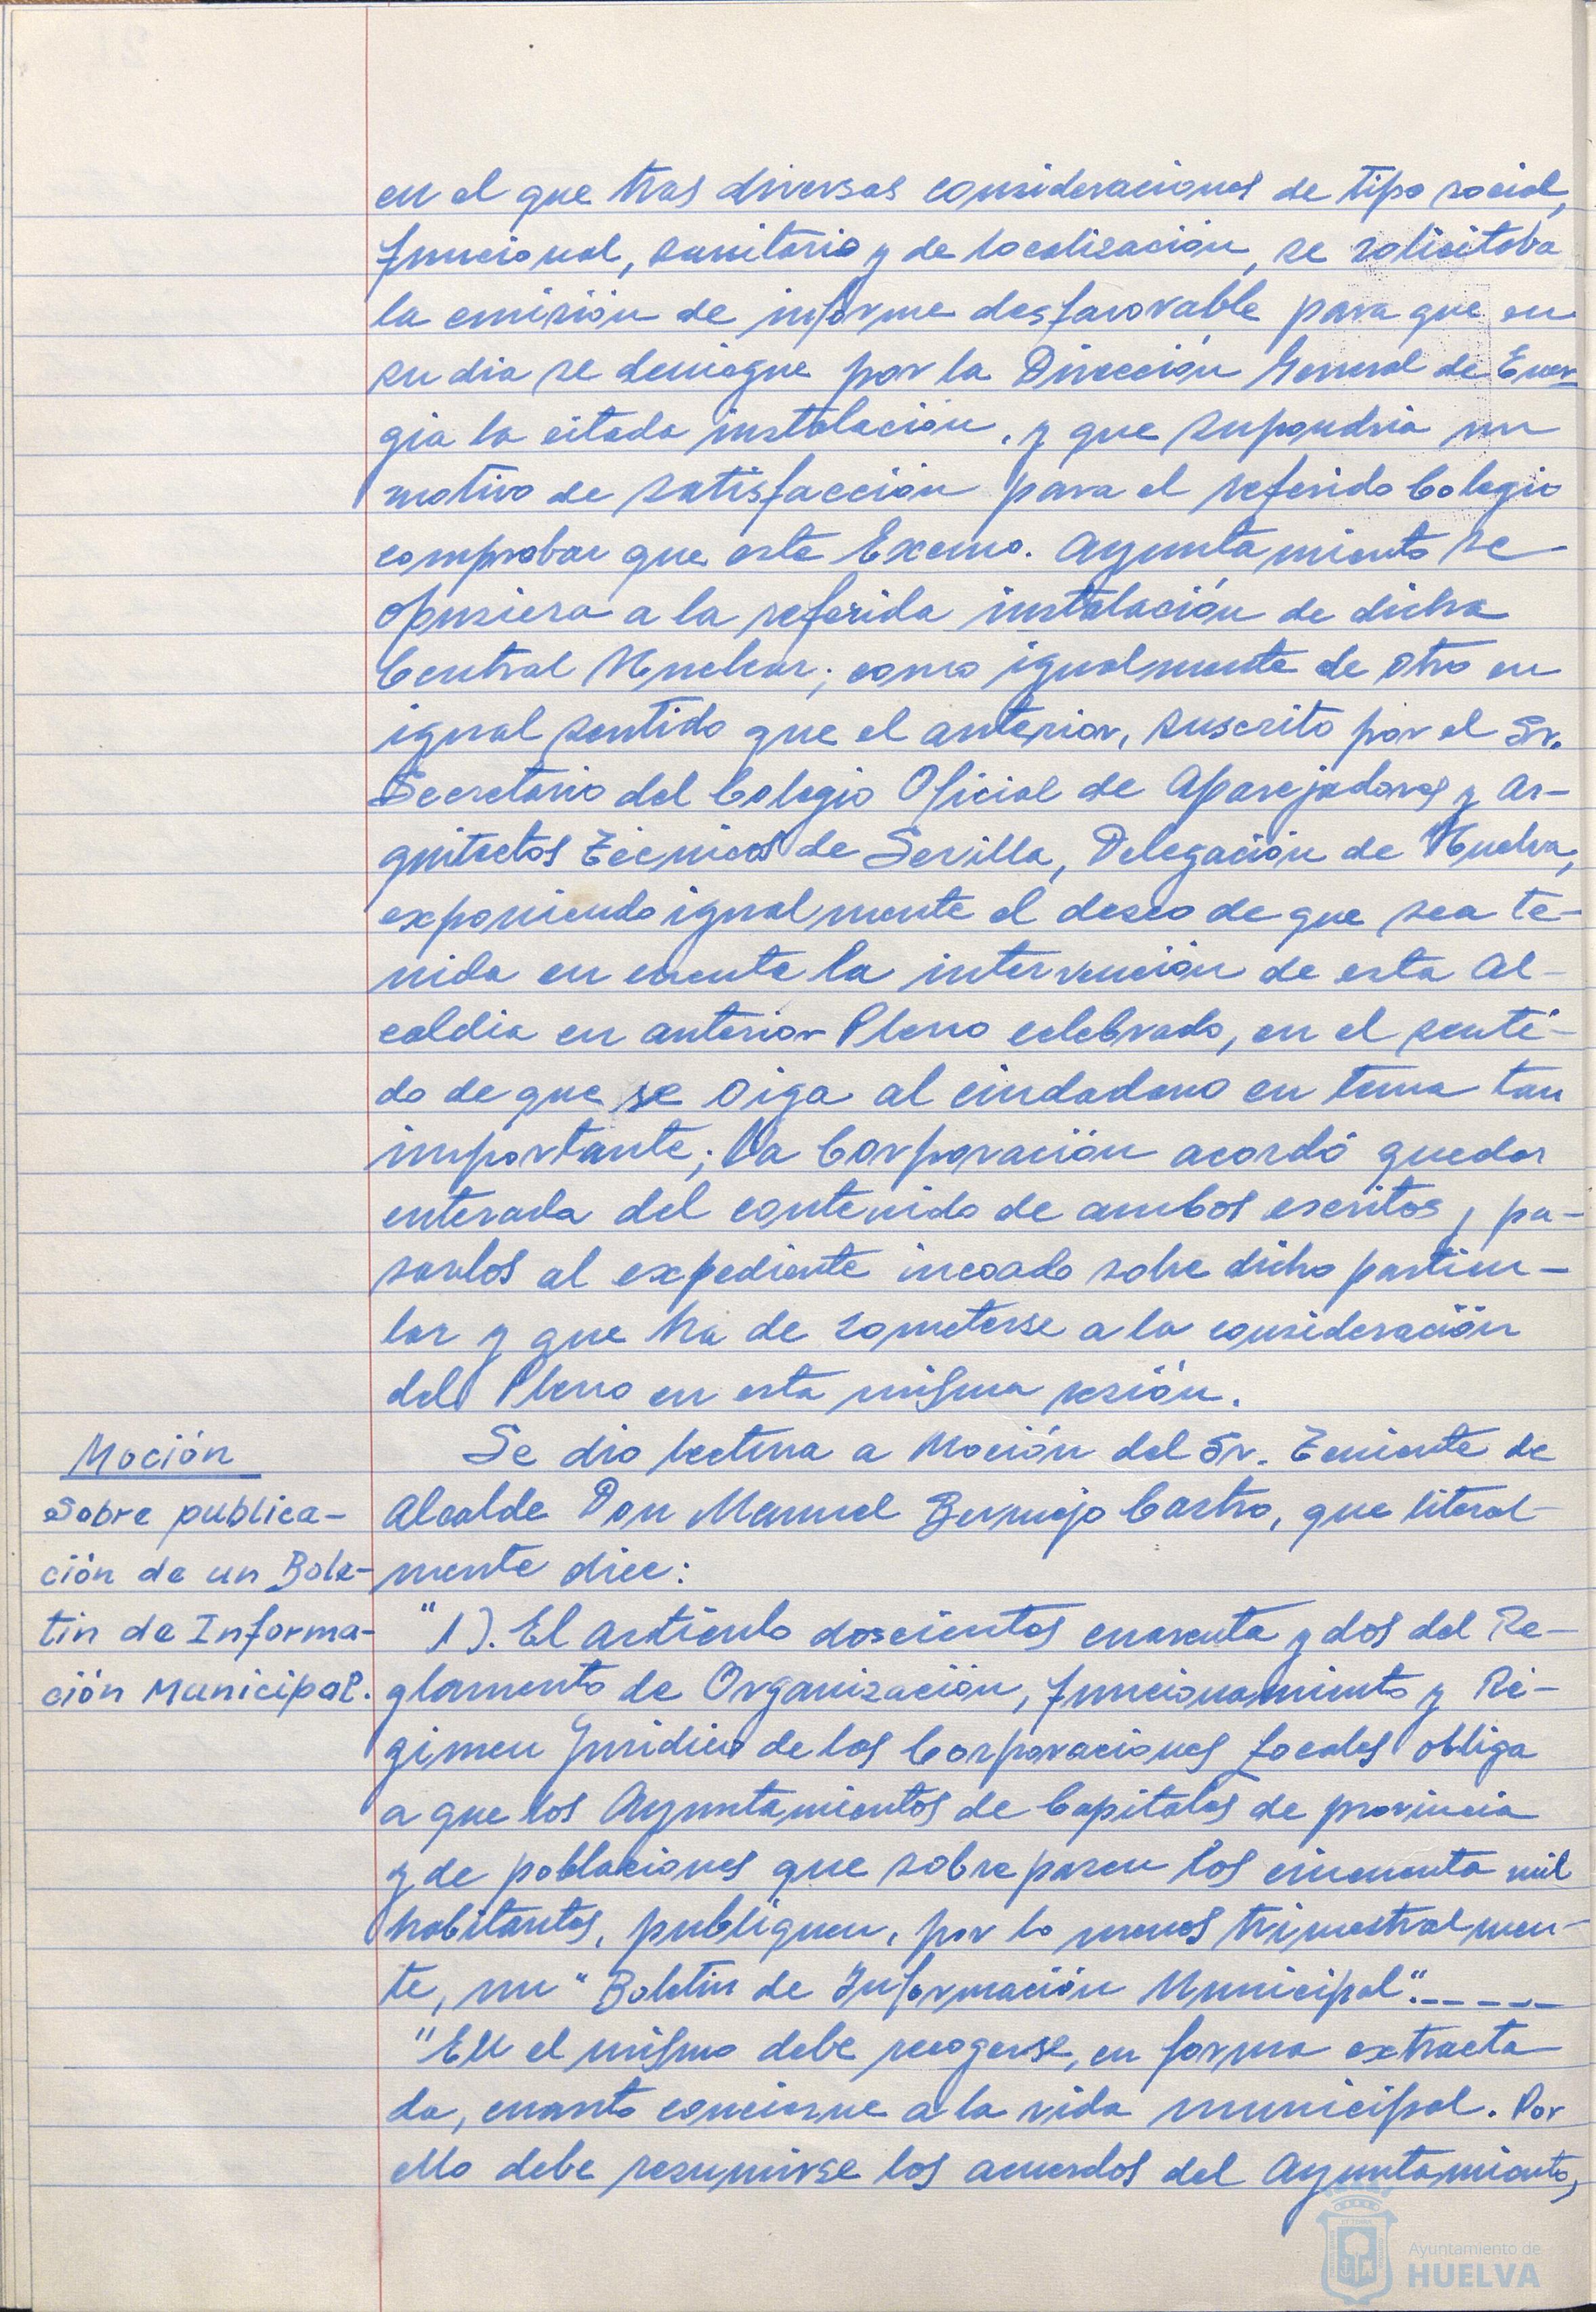 en el que tras diversas consideraciones de tipo social,
funcional, sanitario y de localización, se solicitaba
la emisión de informe desfavorable para que en
su dia se deniegue por la Dirección General de Ener-
gia la citada instalación, y que supondria un
motivo de satisfacción para el referido Colegio
comprobar que este Excmo. Ayuntamiento se
opusiera a la referida instalación de dicha
Central Nuclear; como igualmente de otro en
igual sentido que el anterior, suscrito por el Sr.
Secretario del Colegio Oficial de Aparejadores y Ar-
quitectos Técnicos de Sevilla, Delegación de Huelva,
exponiendo igualmente el deseo de que sea te-
nida en cuenta la intervención de esta Al-
caldia en anterior Pleno celebrado, en el senti-
do de que se oiga al ciudadano en tema tan
importante; La Corporación acordó quedar
enterada del contenido de ambos escritos, pa-
sarlos al expediente incoado sobre dicho particu-
lar y que ha de someterse a la consideración
del Pleno en esta misma sesión.
Moción
Sobre publica-
ción de un Bole-
tin de Informa-
ción Municipal.
Se dio lectura a Moción del Sr. Teniente de
Alcalde Don Manuel Bermejo Castro, que literal-
mente dice:
"1). El artículo doscientos cuarenta y dos del Re-
glamento de Organización, funcionamiento y Ré-
gimen Juridico de las Corporaciones Locales obliga
a que los Ayuntamientos de Capitales de provincia
y de poblaciones que sobrepasen los cincuenta mil
habitantes, publiquen, por lo menos trimestralmen-
te, un "Boletin de Información Municipal".-----
"En el mismo debe recogerse, en forma extracta
da, cuanto concierne a la vida municipal. Por
ello debe resumirse los acuerdos del Ayuntamiento,
Ayuntamiento de
HUELVA